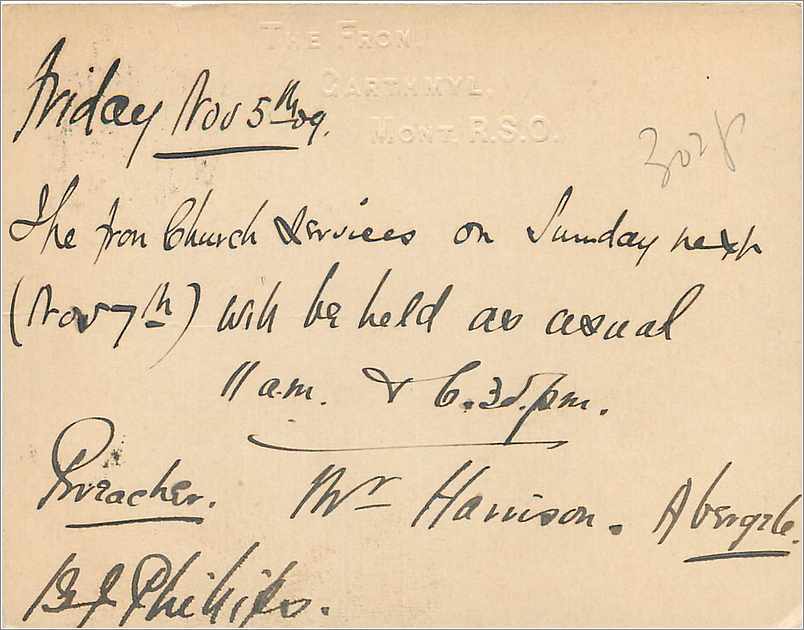 THE FRON,
GARTHMYL.
MONT. R.S.O.
Friday Nov 5th 09.
3028
The Fron Church Services on Sunday next
(Nov 7th) will be held as usual
11 a.m. & 6.30 p.m.
Preacher. Mr Harrison. Abergele.
Phillips.